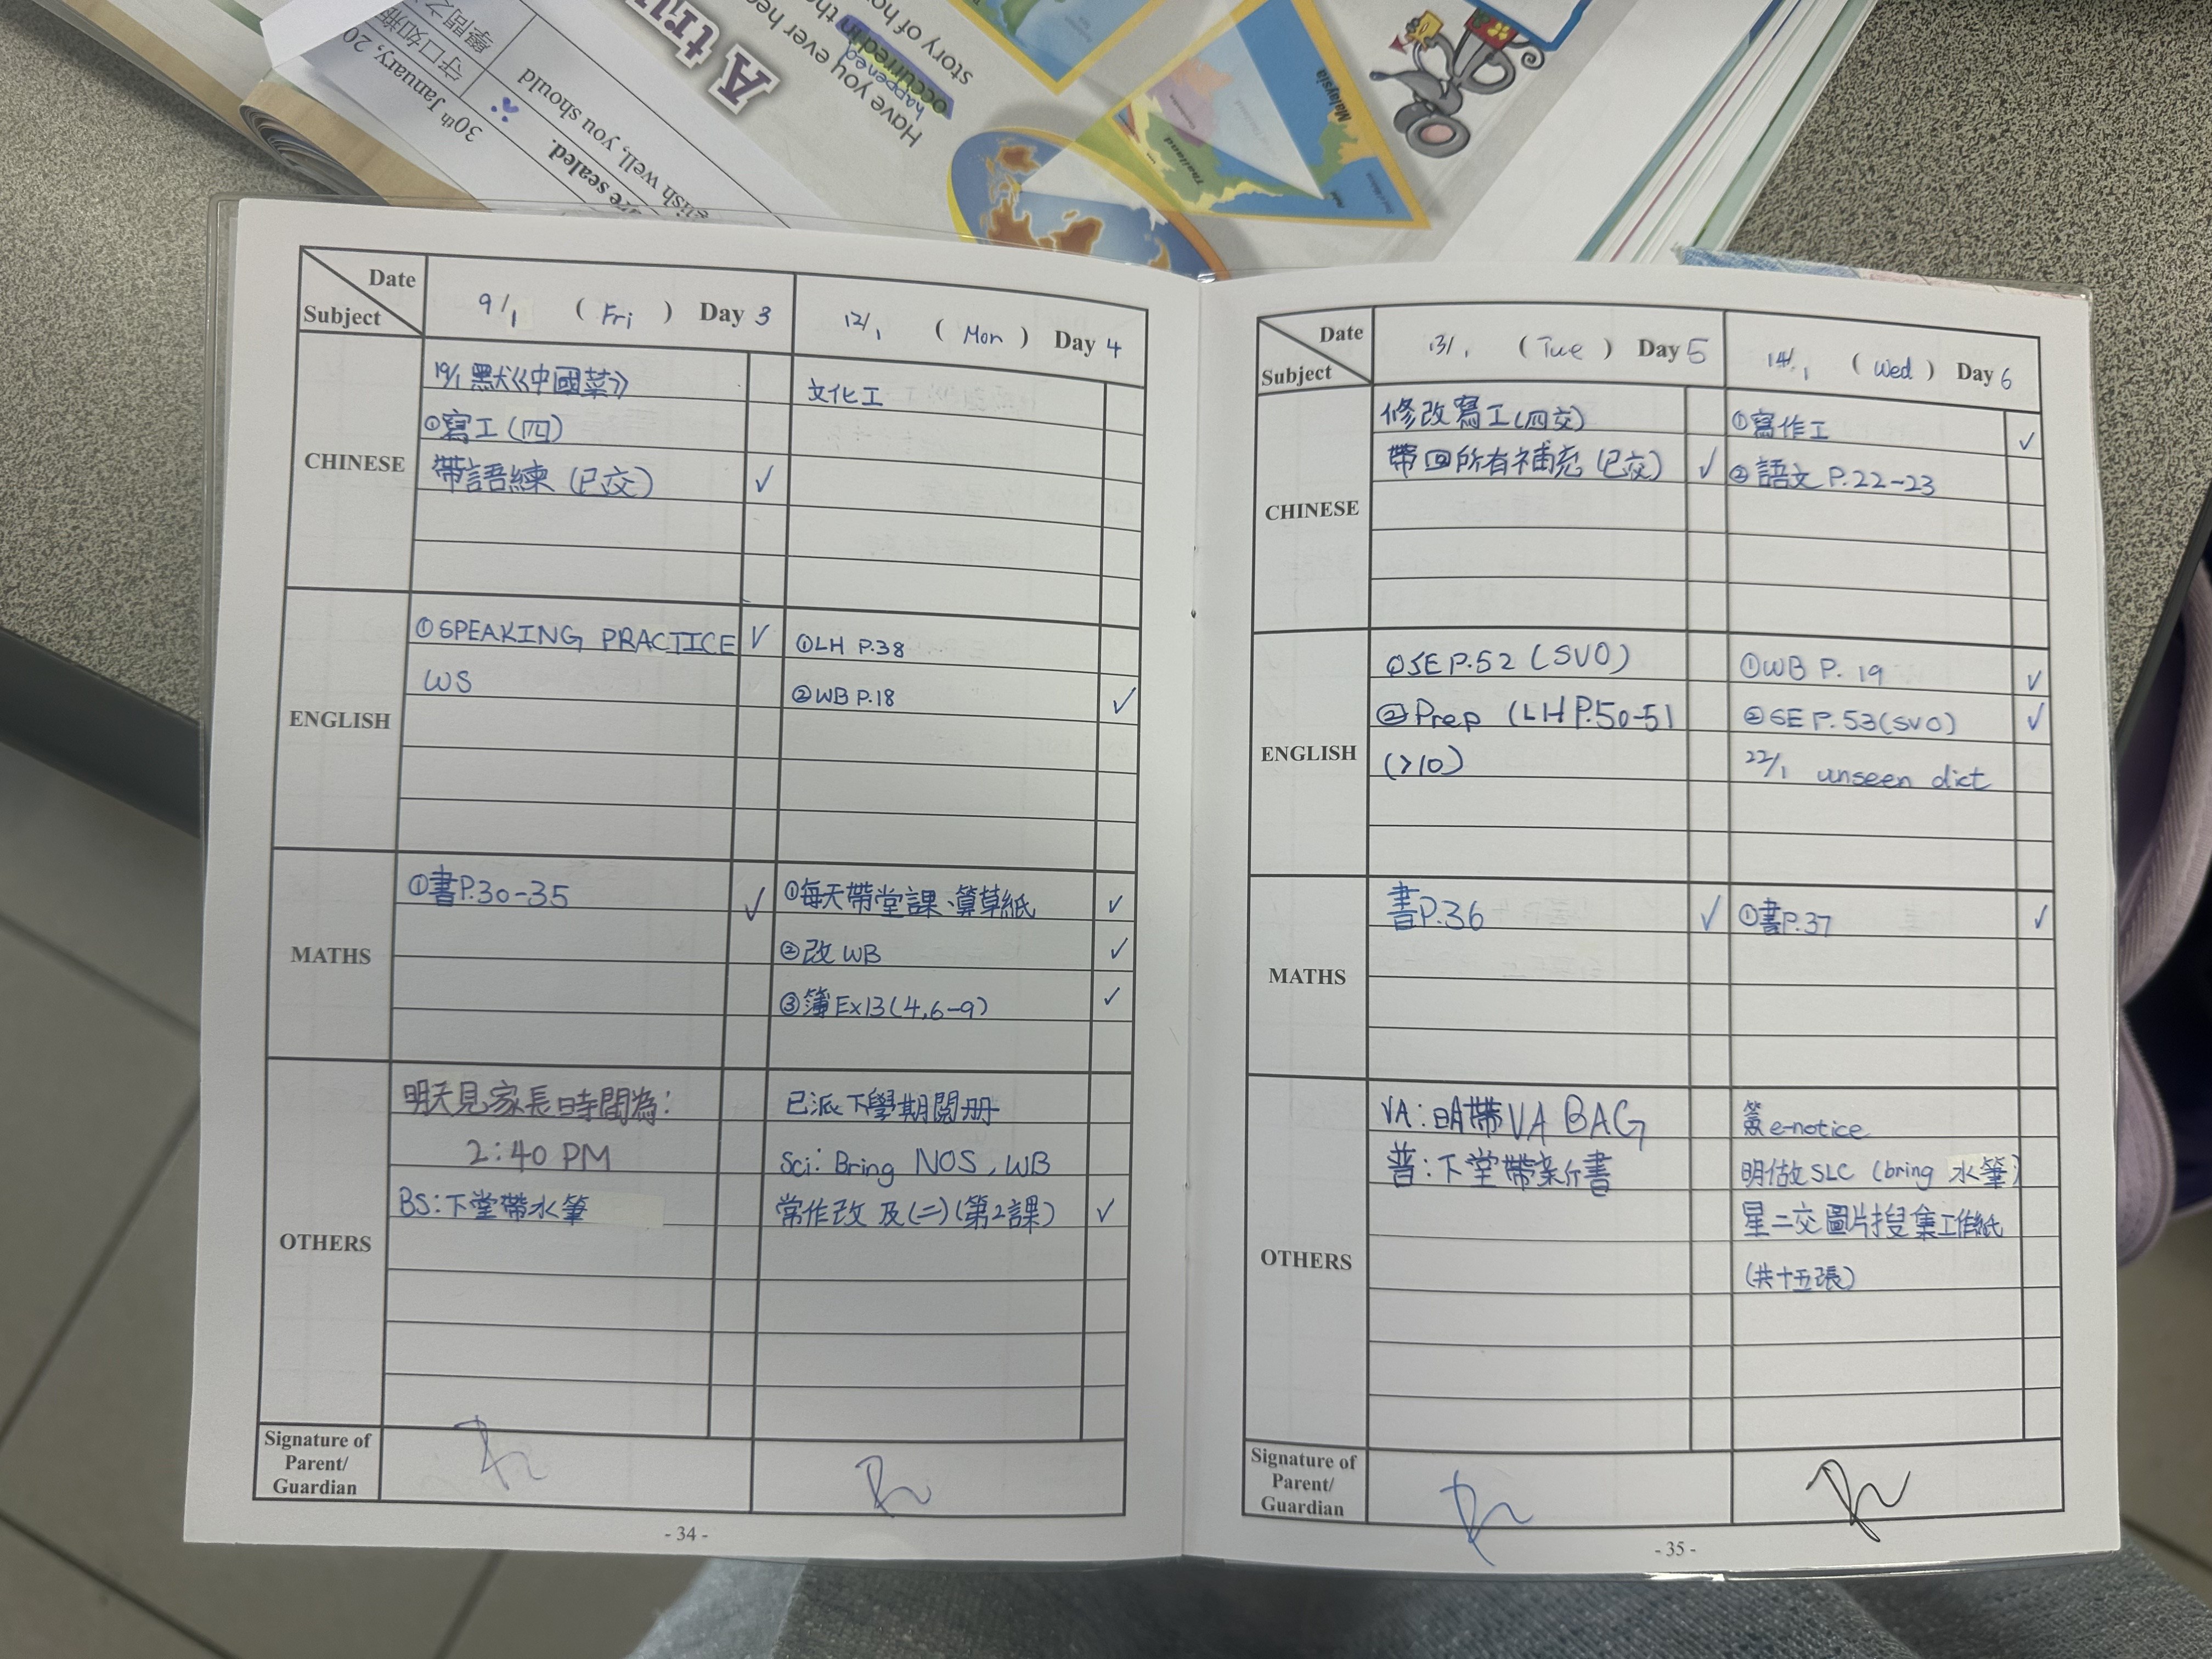 30th January, 20
守口如瓶
學問之
are sealed.
well, you should
A tru
Have you ever hea
happened
occurred in th
story of ho
Malaysia
Thailand
Date
Subject
9/1 ( Fri ) Day 3
12/1 ( Mon ) Day 4
CHINESE
19/1 默《中國菜》
①寫工(四)
帶語練 (已交) ✓
文化工
ENGLISH
①SPEAKING PRACTICE ✓
WS
①LH P.38
②WB P.18 ✓
MATHS
①書P.30-35 ✓
①每天帶堂課、算草紙 ✓
②改 WB ✓
③簿 Ex13(4,6-9) ✓
OTHERS
明天見家長時間為:
2:40 PM
BS:下堂帶水筆
已派下學期閱冊
Sci: Bring NOS, WB
常作改 及(二)(第2課) ✓
Signature of
Parent/
Guardian
- 34 -
Date
Subject
13/1 ( Tue ) Day 5
14/1 ( Wed ) Day 6
CHINESE
修改寫工(四交)
帶回所有補充 (已交) ✓
①寫作工 ✓
②語文 P.22-23
ENGLISH
①SE P.52 (SVO)
②Prep (LH P.50-51
(>10)
①WB P. 19 ✓
②SE P. 53(SVO) ✓
22/1 unseen dict
MATHS
書P.36 ✓
①書P.37 ✓
OTHERS
VA:明帶VA BAG
普:下堂帶
簽 e-notice
明做 SLC (bring 水筆)
星二交圖片搜集工作紙
(共十五張)
Signature of
Parent/
Guardian
- 35 -